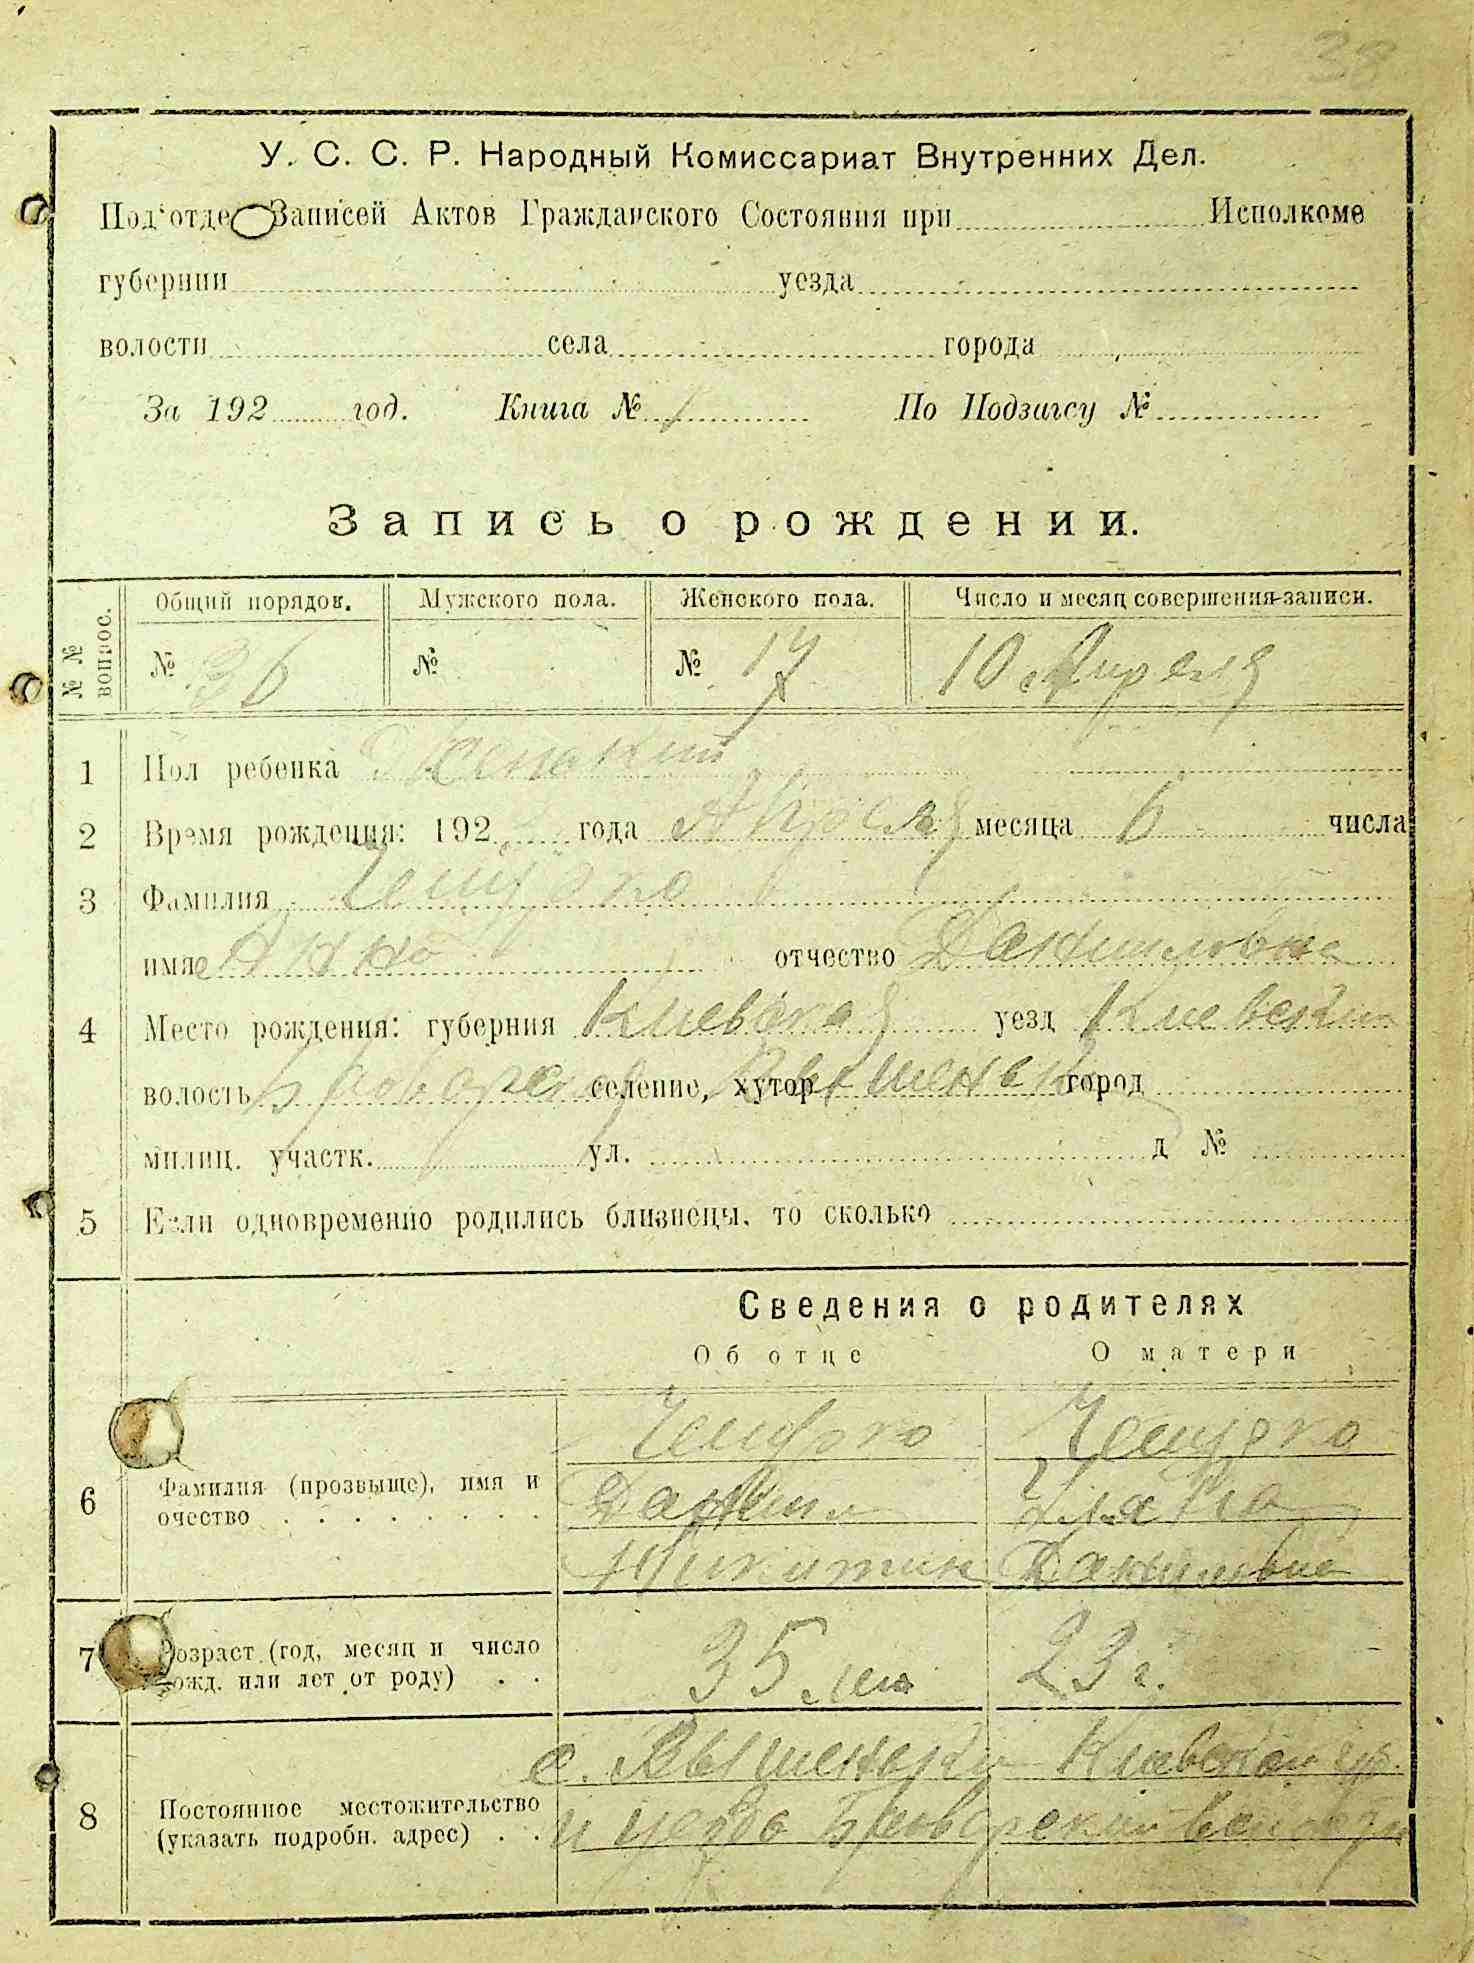 38
У. С. С. Р. Народный Комиссариат Внутренних Дел.
Под'отде Записей Актов Гражданского Состояния при Исполкоме
губернии уезда
волости села города
За 192 год. Книга № 1 По Подзагсу №
Запись о рождении.
№ № вопрос. Общий порядок. Мужского пола. Женского пола. Число и месяц совершения записи.
№ 36 № № 17 10 Апреля
1 Пол ребенка Женский
2 Время рождения: 192 года Апреля месяца 6 числа
3 Фамилия
имя Анна отчество Даниловна
4 Место рождения: губерния Киевская уезд Киевский
волость Броварская селение, хутор Вышеньки город
милиц. участк. ул. д №
5 Если одновременно родились близнецы, то сколько
Сведения о родителях
Об отце О матери
6 Фамилия (прозвище), имя и
очество
Данил
Никитин Даниловна
7 Возраст (год, месяц и число
рожд. или лет от роду) 35 лет 23 г.
с. Вышеньки Киевской гр.
8 Постоянное местожительство
(указать подробн. адрес) и уезда Броварской волости